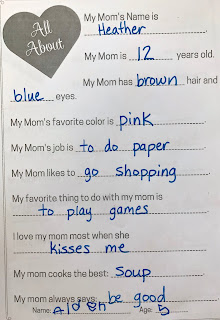 All About
My Mom's Name is
Heather
My Mom is 12 years old.
My Mom has brown hair and
blue eyes.
My Mom's favorite color is pink
My Mom's job is to do paper
My Mom likes to go shopping
My favorite thing to do with my mom is
to play games
I love my mom most when she
kisses me
My mom cooks the best: soup
My mom always says: be good
Name: Age: 5